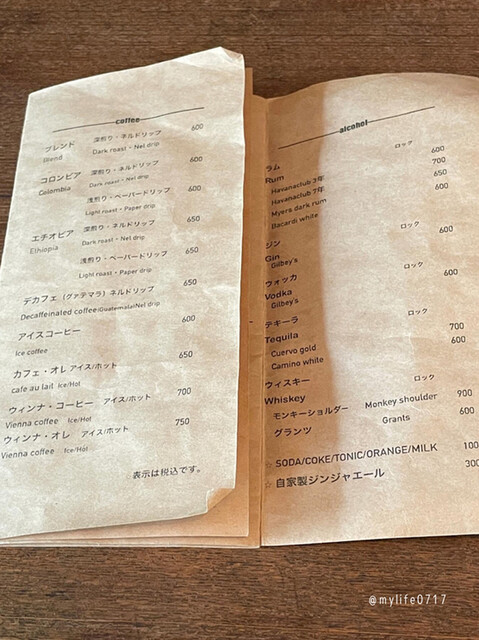 coffee
ブレンド 深煎り・ネルドリップ 600
Blend Dark roast・Nel drip
コロンビア 深煎り・ネルドリップ 600
Colombia Dark roast・Nel drip
浅煎り・ペーパードリップ 600
Light roast・Paper drip
エチオピア 深煎り・ネルドリップ 650
Ethiopia Dark roast・Nel drip
浅煎り・ペーパードリップ 650
Light roast・Paper drip
デカフェ（グァテマラ）ネルドリップ 650
Decaffeinated coffee(Guatemala)Nel drip
アイスコーヒー 600
Ice coffee
カフェ・オレ アイス/ホット 650
cafe au lait Ice/Hot
ウィンナ・コーヒー アイス/ホット 700
Vienna coffee Ice/Hot
ウィンナ・オレ アイス/ホット 750
Vienna coffee Ice/Hot
表示は税込です。
alcohol
ラム ロック
Rum 600
Havanaclub 3年 700
Havanaclub 7年 650
Myers dark rum 600
Bacardi white
ジン ロック
Gin 600
Gilbey's
ウォッカ ロック
Vodka 600
Gilbey's
テキーラ ロック
Tequila 700
Cuervo gold 600
Camino white
ウィスキー ロック
Whiskey
モンキーショルダー Monkey shoulder 900
グランツ Grants 600
☆ SODA/COKE/TONIC/ORANGE/MILK 100
☆ 自家製ジンジャエール 300
@mylife0717